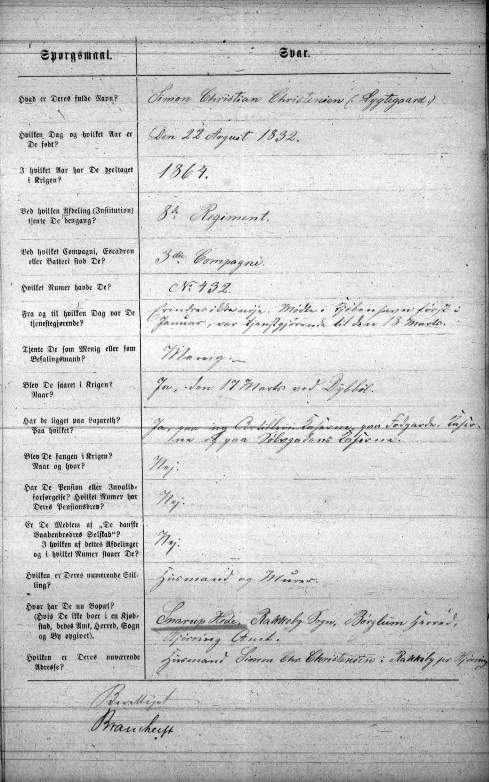 Spørgsmaal. Svar.
Hvad er Deres fulde Navn? Simon Christian Christensen (Lygtegaard)
Hvilken Dag og hvilket Aar er De født? Den 22 August 1832.
I hvilket Aar har De deeltaget i Krigen? 1864.
Ved hvilken Afdeling (Institution) tjente De dengang? 8de Regiment.
Ved hvilket Compagni, Escadron eller Batteri stod De? 3die Compagni.
Hvilket Numer havde De? No 432.
Fra og til hvilken Dag var De tjenestegjørende? Erindres ikke nøje. Mødte i Kjøbenhavn først i
Januar, var tjenstgjørende til den 18 Marts.
Tjente De som Menig eller som Befalingsmand? Menig.
Blev De saaret i Krigen? Naar? Ja, den 17 Marts ved Dybbøl.
Har De ligget paa Lazareth? Paa hvilket? Ja, paa ny Artilleri Caserne, paa Fodgarde Caser-
ne og paa Sølvgadens Caserne.
Blev De fangen i Krigen? Naar og hvor? Nej.
Har De Pension eller Invalideforsørgelse? Hvilket Numer har Deres Pensionsbrev? Nej.
Er De Medlem af „De danske Vaabenbrødres Selskab"? I hvilken af dettes Afdelinger og i hvilket Numer staaer De? Nej.
Hvilken er Deres nuværende Stilling? Husmand og Murer.
Hvor har De nu Bopæl? (Hvis De ikke boer i en Kjøbstad, bedes Amt, Herred, Sogn og By opgivet). Smarup Hede, Rakkeby Sogn, Børglum Herred,
Hjørring Amt.
Hvilken er Deres nuværende Adresse? Husmand Simon Chr. Christensen i Rakkeby pr Hjørring
Berettiget